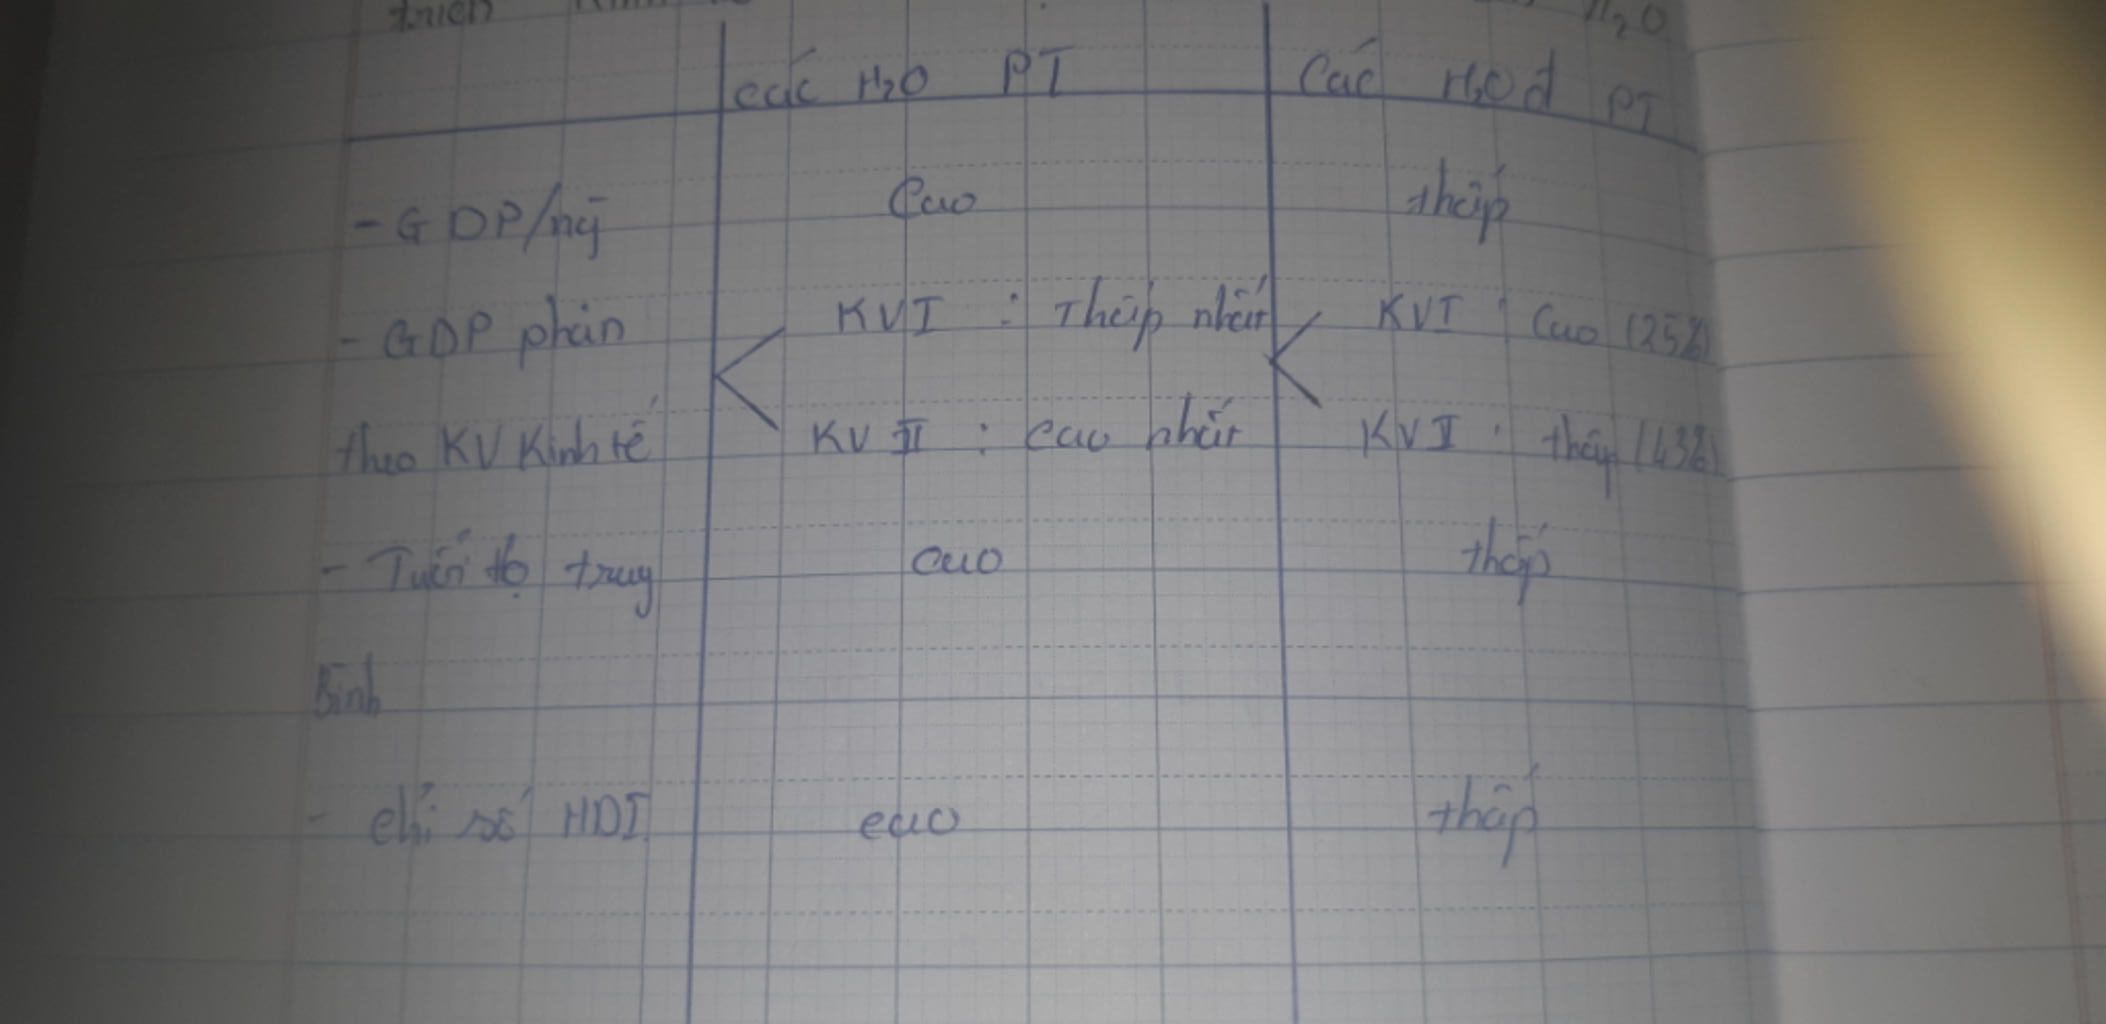 triển H₂O
các H₂O PT Các H₂O đ PT
- GDP/ng̃ Cao thấp
- GDP phân KV I : Thấp nhất KV I : Cao (25%)
theo KV Kinh tế KV III : cao nhất KV I : thấp (43%)
- Tuổi thọ truy cao thấp
Bình
- chỉ số HDI cao thấp